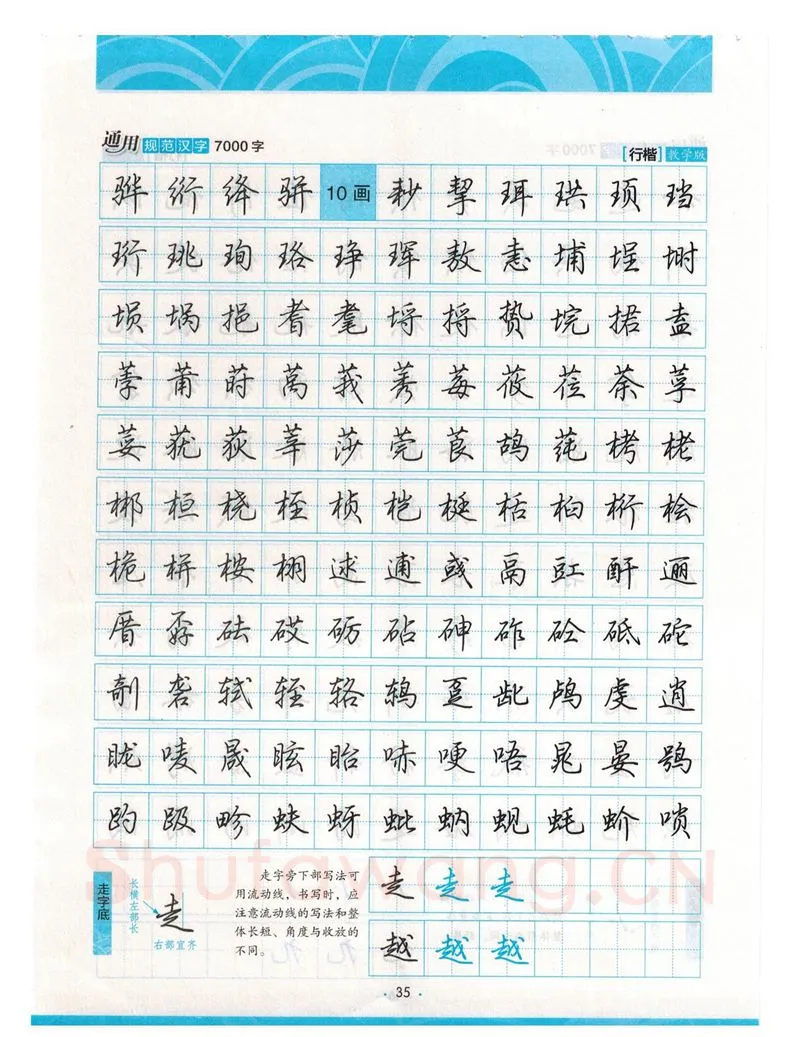 通用规范汉字7000字 [行楷]教学版
骅 绗 绛 骈 10画 耖 挈 珥 珙 顼 珰
珩 珧 珣 珞 琤 珲 敖 恚 埔 埕 埘
埙 埚 挹 耆 耄 埒 捋 贽 垸 捃 盍
荸 莆 莳 莴 莪 莠 莓 莜 莅 荼 莩
荽 莸 荻 莘 莎 莞 莨 鸪 莼 栲 栳
郴 桓 桡 桎 桢 桤 梃 栝 桕 桁 桧
桅 栟 桉 栩 逑 逋 彧 鬲 豇 酐 逦
厝 孬 砝 砹 砺 砧 砷 砟 砼 砥 砣
剞 砻 轼 轾 辂 鸫 趸 龀 鸬 虔 逍
眬 唛 晟 眩 眙 哧 哽 唔 晁 晏 鸮
趵 趿 畛 蚨 蚜 蚍 蚋 蚬 蚝 蚧 唢
Shufawang.CN
走字底
长横左部长
走
右部宜齐
走字旁下部写法可
用流动线，书写时，应
注意流动线的写法和整
体长短、角度与收放的
不同。
走 走 走
越 越 越
· 35 ·